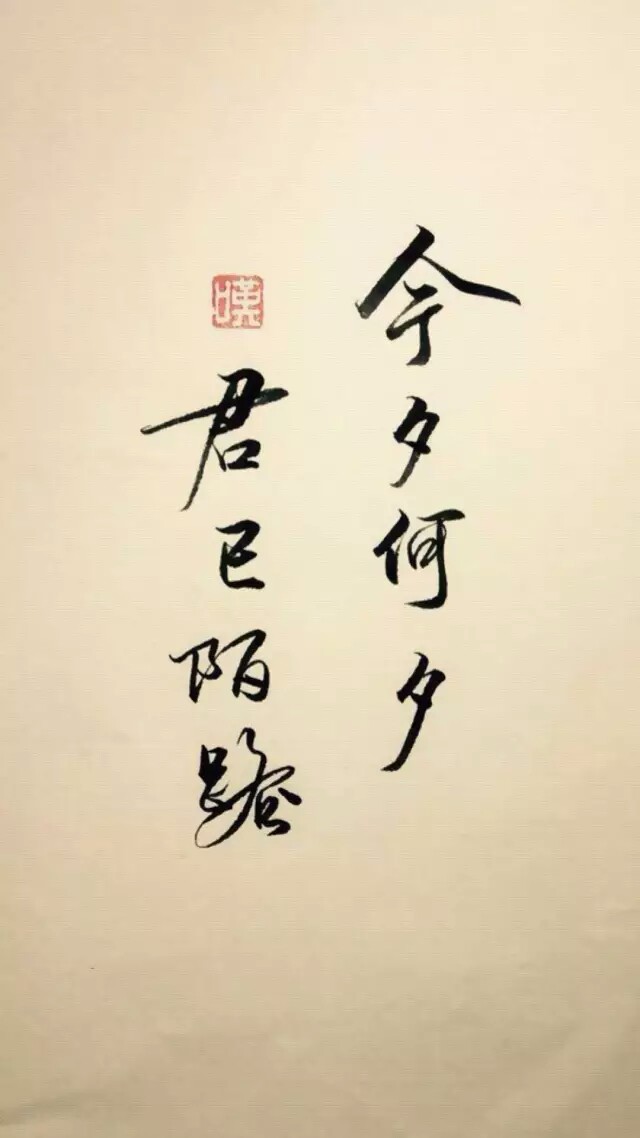 今夕何夕
嘆
君已陌路